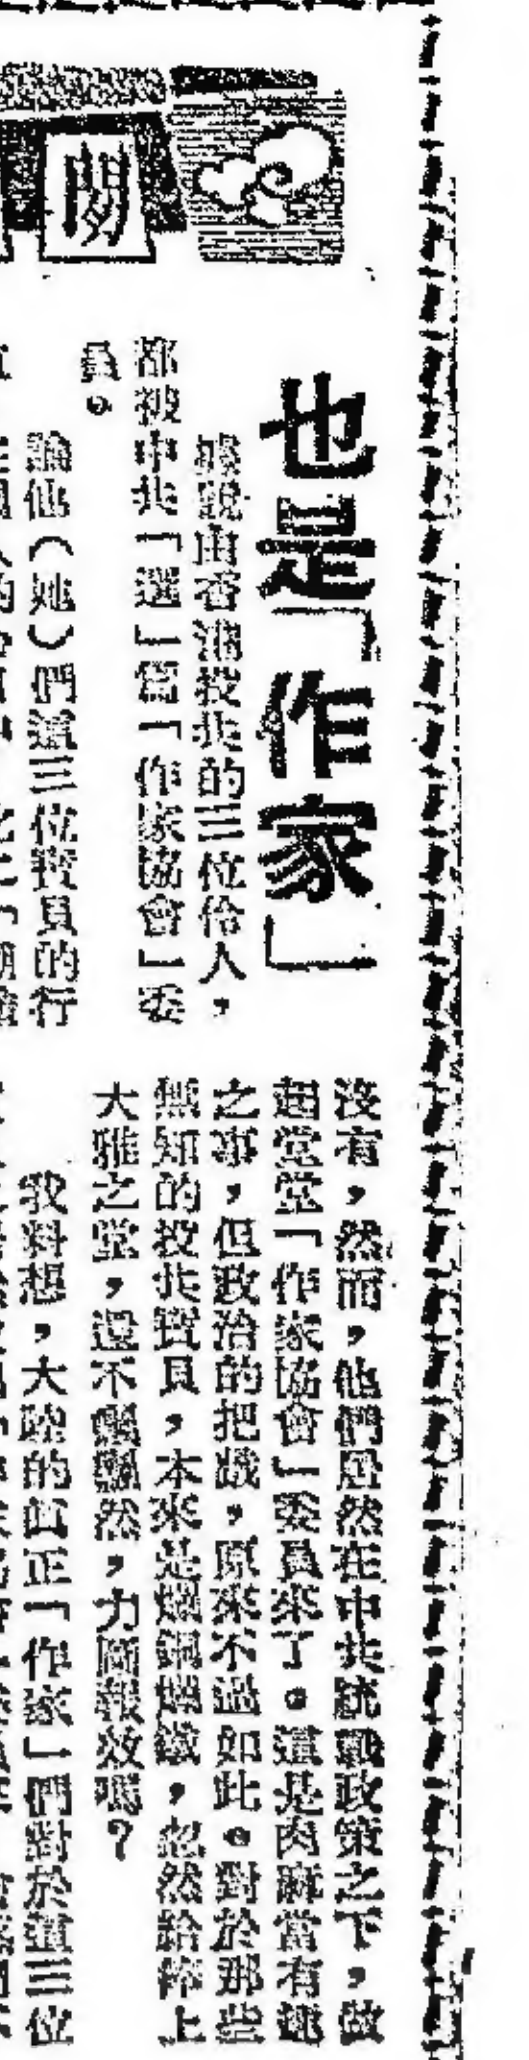 閒
也是「作家」
據說由香港投共的三位伶人，
都被中共「選」爲「作家協會」委
員。
論他（她）們這三位寳貝的行
沒有，然而，他們居然在中共統戰政策之下，做
起堂堂「作家協會」委員來了。這是肉麻當有趣
之事，但政治的把戲，原來不過如此。對於那些
無知的投共寳貝，本來是爛銅爛鐵，忽然給捧上
大雅之堂，還不飄飄然，力圖報效嗎？
我料想，大陸的眞正「作家」們對於這三位